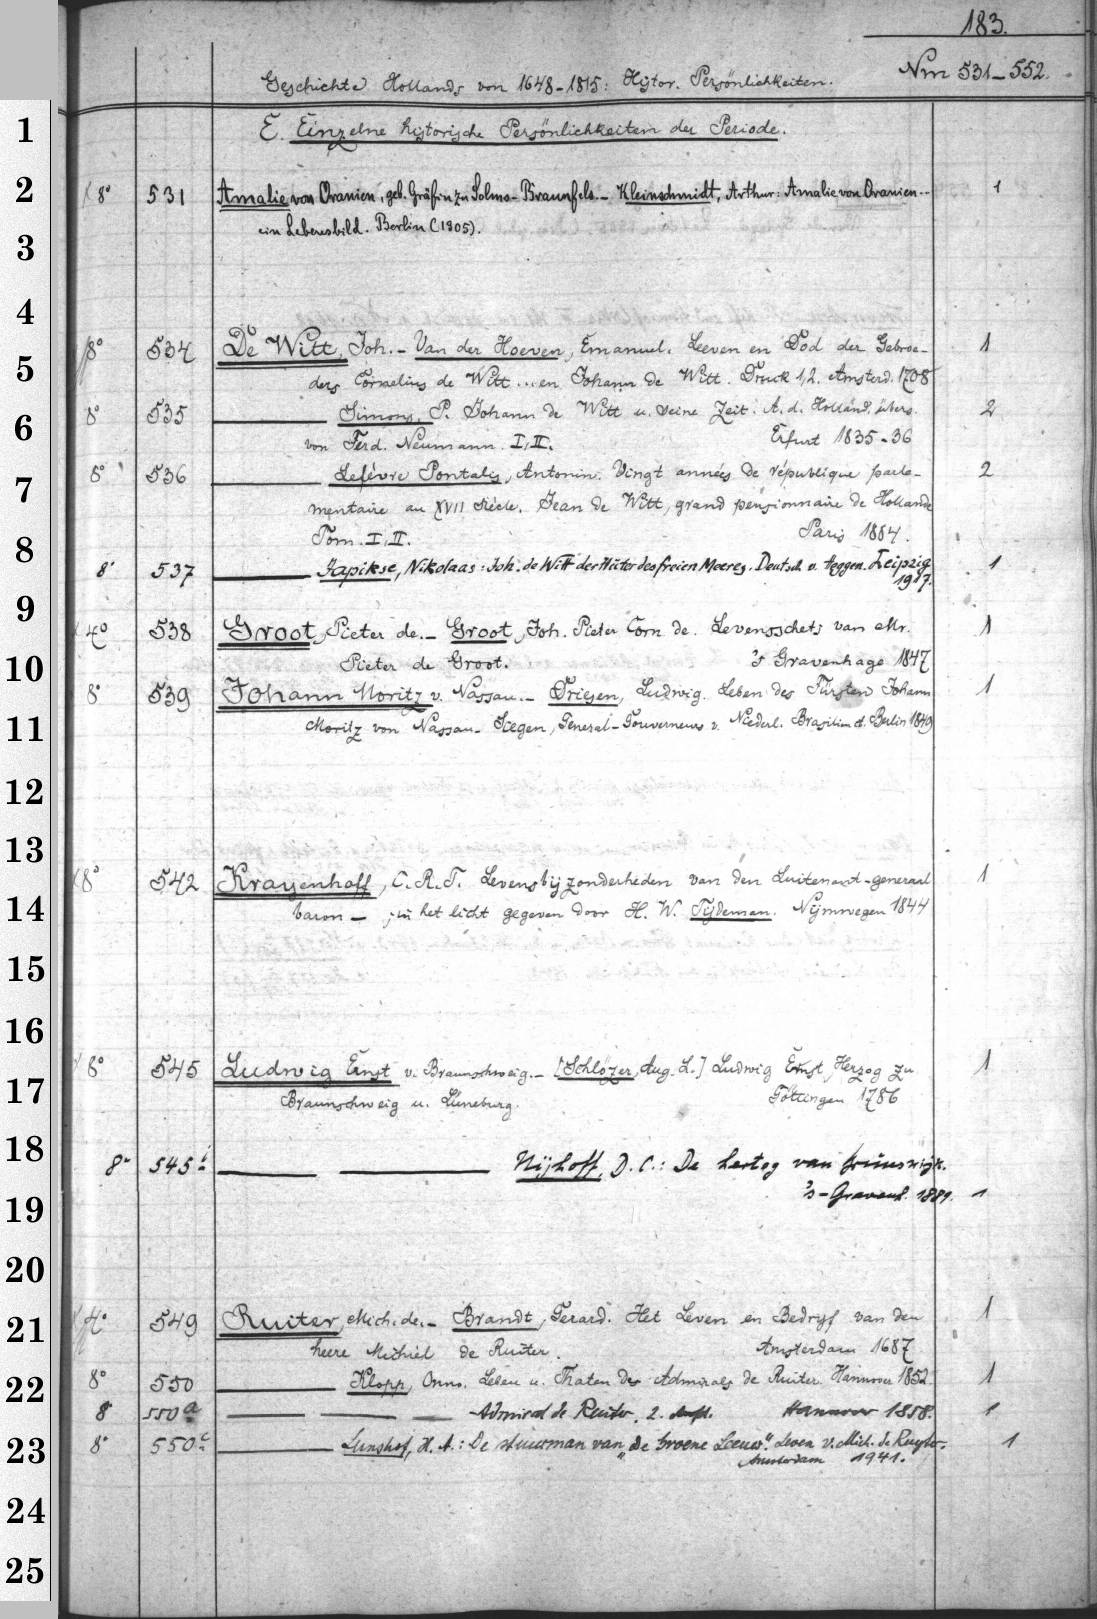 183.
Geschichte Hollands von 1648-1815: Histor. Persönlichkeiten. Nrn 531-552.
1 E. Einzelne historische Persönlichkeiten der Periode.
2 8° 531 Amalie von Oranien, geb. Gräfin zu Solms-Braunfels.- Kleinschmidt, Arthur: Amalie von Oranien.. 1
3 ein Lebensbild. Berlin (1905).
4
8° 534 De Witt, Joh.- Van der Hoeven, Emanuel. Leeven en Dod der Gebroe- 1
5 ders Cornelius de Witt...en Johann de Witt. Druck 1,2. Amsterd. 1708
8° 535 Simons, P. Johann de Witt u. seine Zeit. A. d. Holländ. übers. 2
6 von Ferd. Neumann. I,II. Erfurt 1835-36
8° 536 Lefévre Pontalis, Antonin. Vingt années de république parle- 2
7 mentaire au XVII Siécle. Jean de Witt, grand pensionnaire de Hollande
8 Tom. I,II. Paris 1884.
8° 537 Japikse, Nikolaas: Joh. de Witt der Hüter des freien Meeres. Deutsch v. Heggen. Leipzig 1
1917.
9
4° 538 Groot, Pieter de.- Groot, Joh. Pieter Corn de. Levensschets van Mr. 1
10 Pieter de Groot. 's Gravenhage 1847
8° 539 Johann Moritz v. Nassau.- Driesen, Ludwig. Leben des Fürsten Johann 1
11 Moritz von Nassau-Siegen, General-Gouverneurs v. Niederl. Brasilien etc. Berlin 1849
12
13
8° 542 Krayenhoff, C.R.T. Levensbijzonderheden van den Luitenant-generaal 1
14 baron -, in het licht gegeven door H. W. Tijdeman. Nijmwegen 1844
15
16
8° 545 Ludwig Ernst v. Braunschweig.- [Schlözer, Aug. L.] Ludwig Ernst, Herzog zu 1
17 Braunschweig u. Lüneburg. Göttingen 1786
18 8° 545 Nijhoff, D. C.: De hertog van Brunswijk.
19 's-Gravenh. 1889. 1
20
21 4° 549 Ruiter, Mich. de.- Brandt, Gerard. Het Leven en Bedryf van den 1
heere Michiel de Ruiter. Amsterdam 1687
22 8° 550 Klopp, Onno. Leben u. Thaten des Admirals de Ruiter. Hannover 1852. 1
8° 550a Admiral de Ruiter. 2. Aufl. Hannover 1858. 1
23 8° 550c Lunshof, H. A.: De stuurman van „de Groene Leeuw". Leven v. Mich. de Ruyter. 1
Amsterdam 1941.
24
25